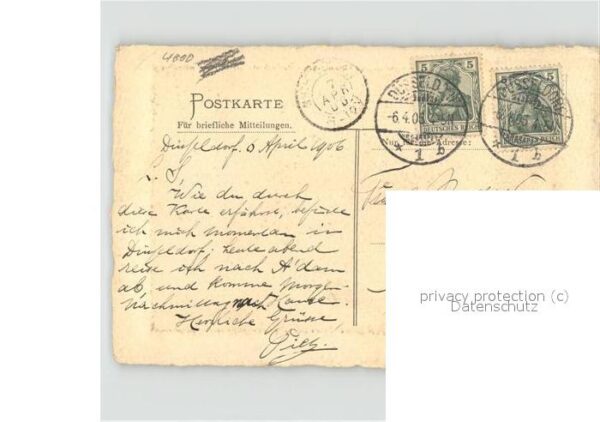 4000
POSTKARTE
Für briefliche Mitteilungen.
5 5
DEUTSCHES REICH DEUTSCHES REICH
DÜSSELD
-6.4.06
* 1 b
DÜSSELDORF
* 1 b
7
APR
06
Nur für die Adresse:
Düsseldorf. 6 April 1906
Wie du durch
diese Karte erfährst, befinde
ich mich momentan in
Düsseldorf. heute abend
reise ich nach A'dam
ab, und komme Morgen
Nachmittag nach Hause.
Herzliche Grüsse
privacy protection (c)
Datenschutz